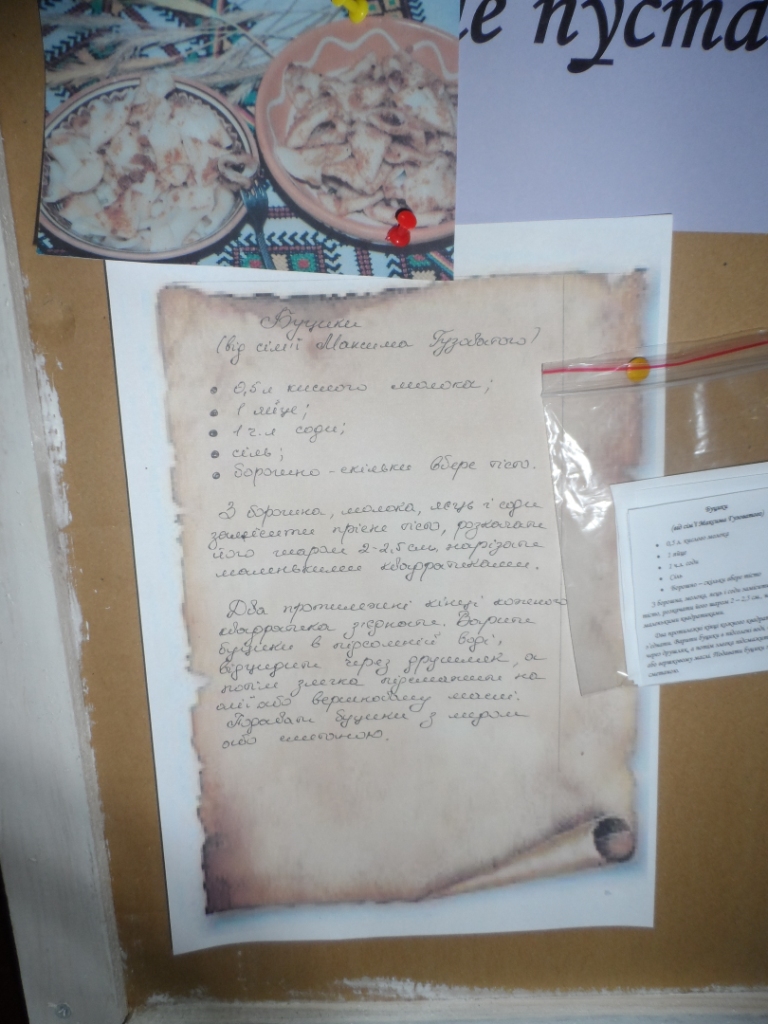 не пуста
Буцики
(від сім'ї Максима Гузоватого)
0,5 л кислого молока;
1 яйце;
1 ч.л соди;
сіль;
борошно - скільки вбере тісто.
З борошна, молока, яєць і соди
замісити прісне тісто, розкачати
його шаром 2-2,5 см, нарізати
маленькими квадратиками.
Два протилежні кінці кожного
квадратика з'єднати. Варити
буцики в підсоленій воді,
відцидити через друшляк, а
потім злегка підсмажити на
олії або вершковому маслі.
Подавати буцики з сиром
або сметаною.
Буцики
(від сім'ї Максима Гузоватого)
0,5 л. кислого молока
1 яйце
1 ч.л. соди
Сіль
Борошно – скільки вбере тісто
З борошна, молока, яєць і соди замісити
тісто, розкачати його шаром 2 – 2,5 см,
маленькими квадратиками.
Два протилежні кінці кожного
з'єднати. Варити буцики в підсоленій воді,
через друшляк, а потім злегка
або вершковому маслі. Подавати буцики
сметаною.